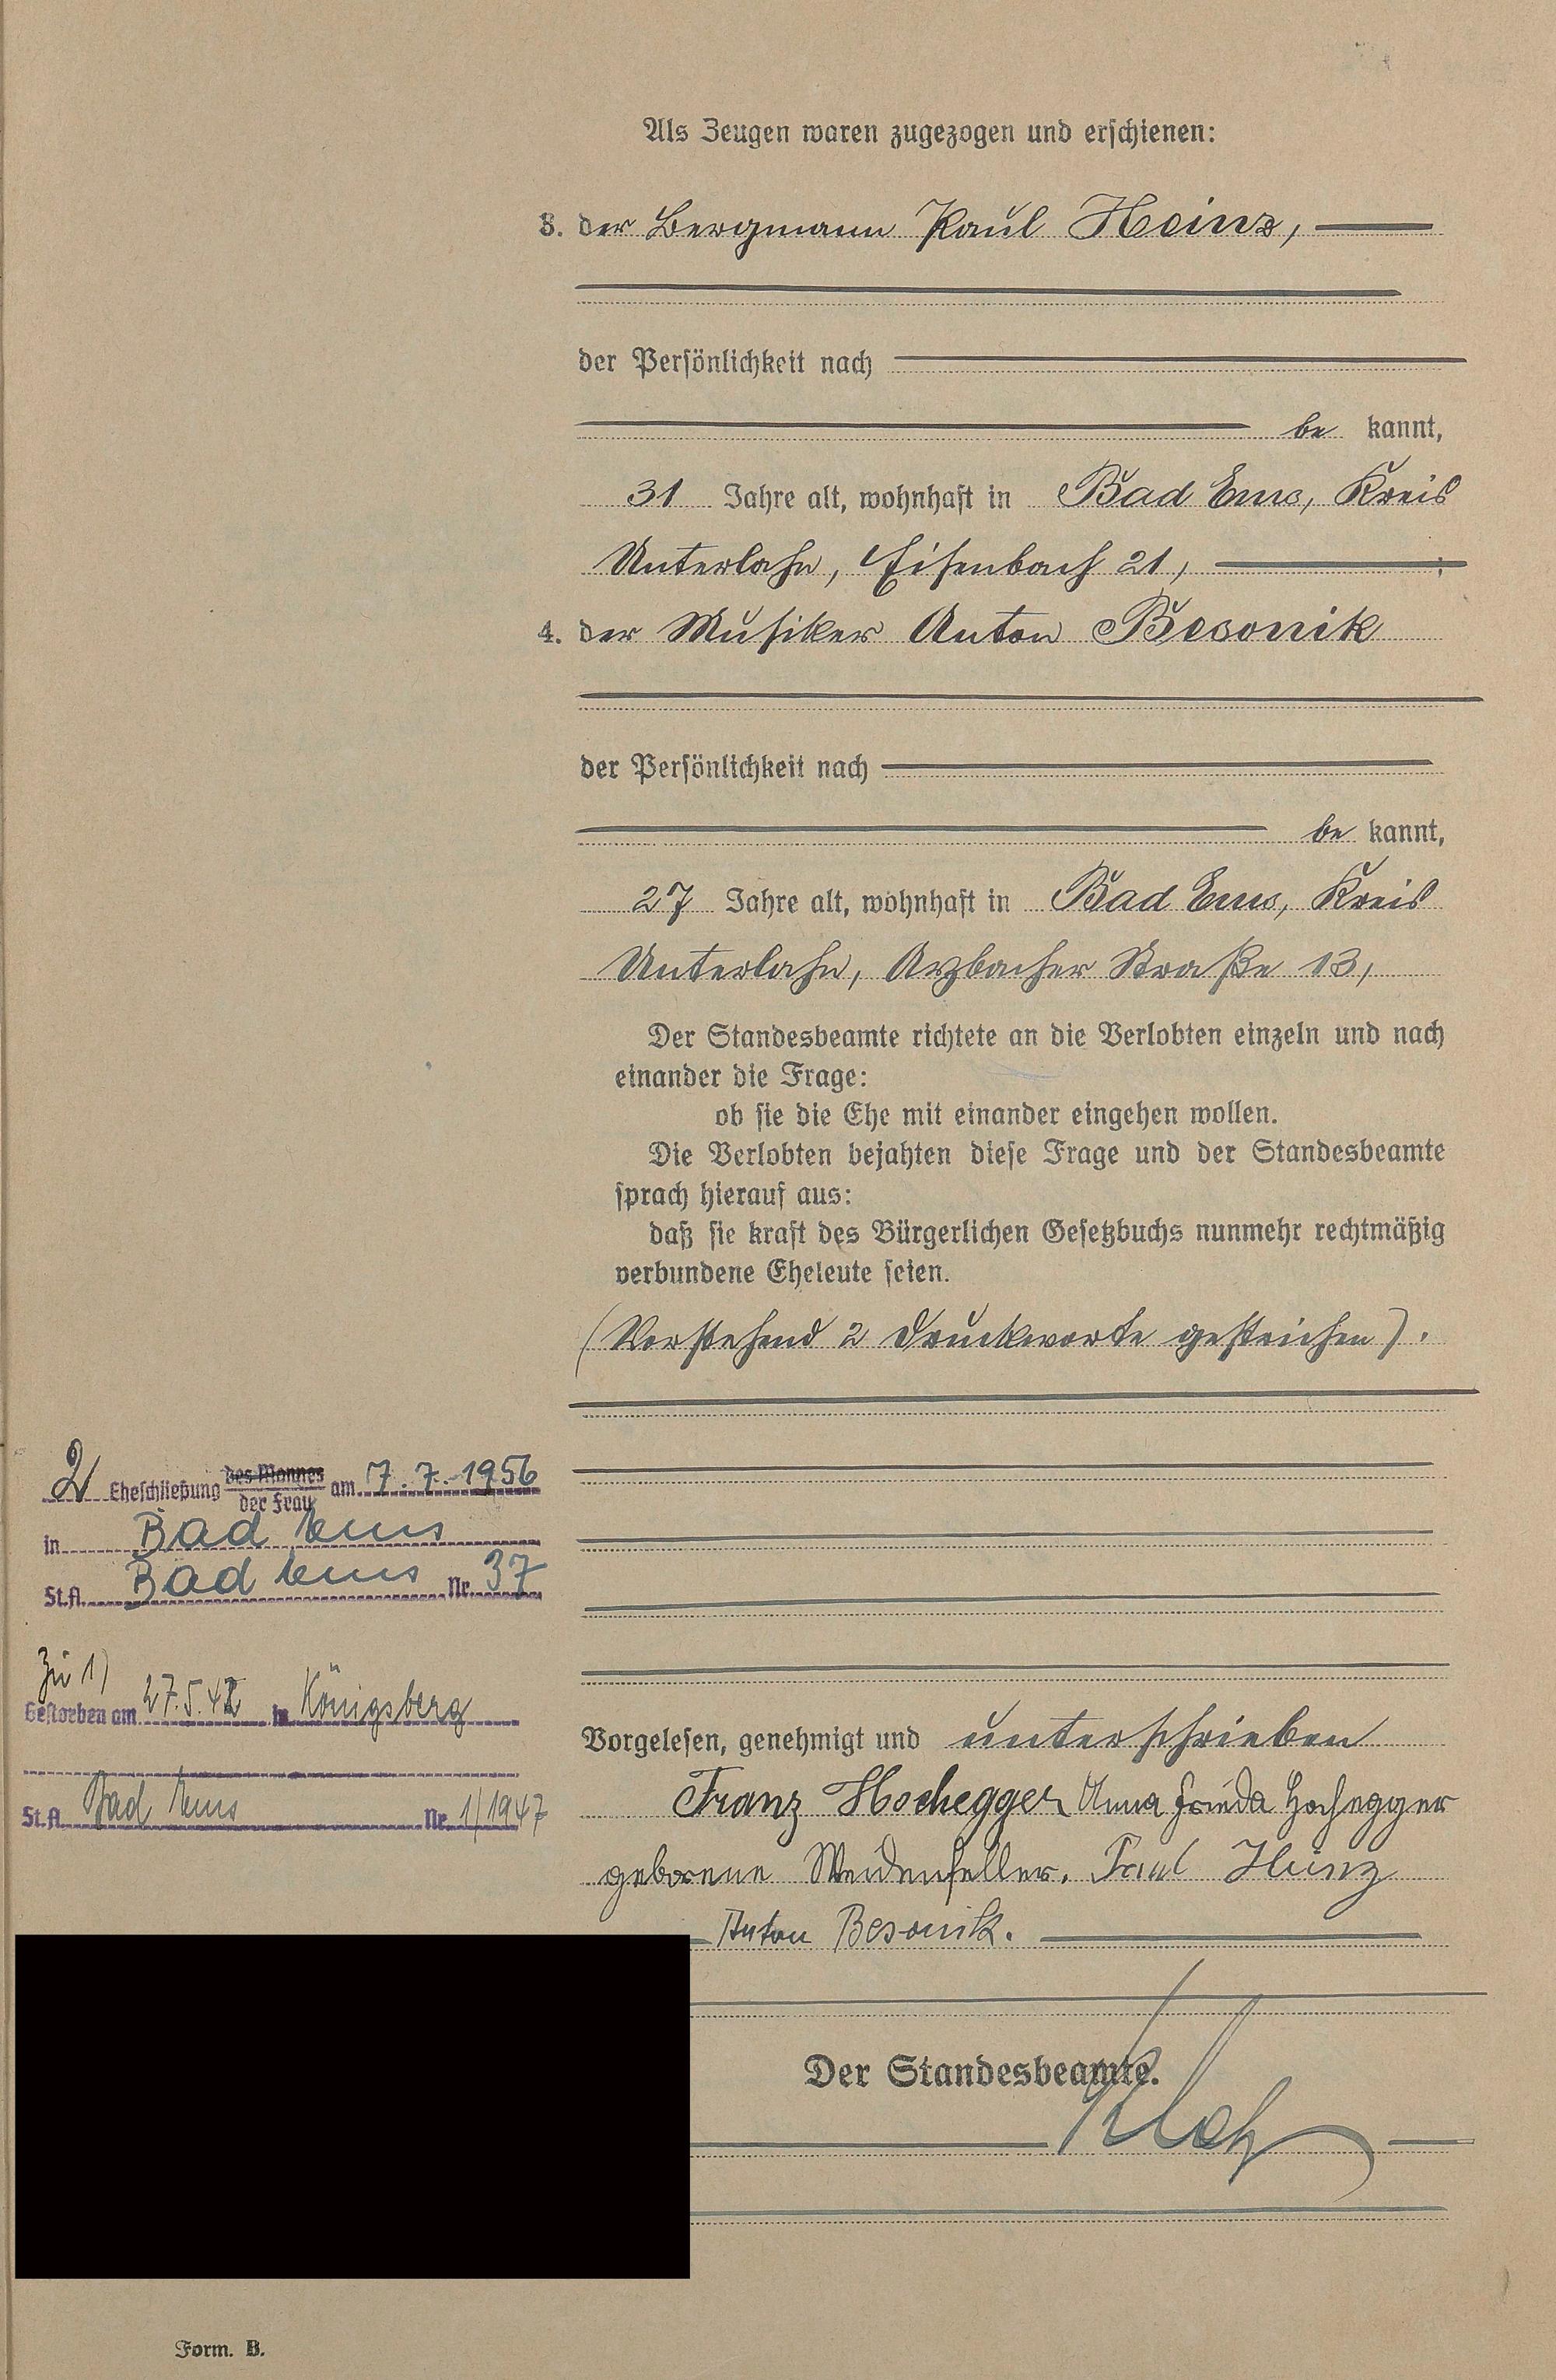 Als Zeugen waren zugezogen und erschienen:
3. der Bergmann Paul Heinz,
der Persönlichkeit nach
be kannt,
31 Jahre alt, wohnhaft in Bad Ems, Kreis
Unterlahn, Eisenbach 21, ;
4. der Musiker Anton Besonik
der Persönlichkeit nach
be kannt,
27 Jahre alt, wohnhaft in Bad Ems, Kreis
Unterlahn, Arzbacher Straße 13,
Der Standesbeamte richtete an die Verlobten einzeln und nach
einander die Frage:
ob sie die Ehe mit einander eingehen wollen.
Die Verlobten bejahten diese Frage und der Standesbeamte
sprach hierauf aus:
daß sie kraft des Bürgerlichen Gesetzbuchs nunmehr rechtmäßig
verbundene Eheleute seien.
(Vorstehend 2 Druckworte gestrichen).
2 Eheschließung des Mannes
der Frau am 7.7.1956
in Bad Ems
St.A. Bad Ems Nr. 37
Zu 1)
Gestorben am 27.5.42 in Königsberg
St.A. Bad Ems Nr. 1/1947
Vorgelesen, genehmigt und unterschrieben
Franz Hochegger Anna Frieda Hochegger
geborene Weidenfeller. Paul Heinz
Anton Besonik.
Der Standesbeamte.
Form. B.